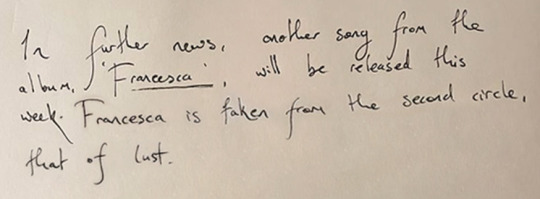 In further news, another song from the
album, 'Francesca', will be released this
week. Francesca is taken from the second circle,
that of lust.